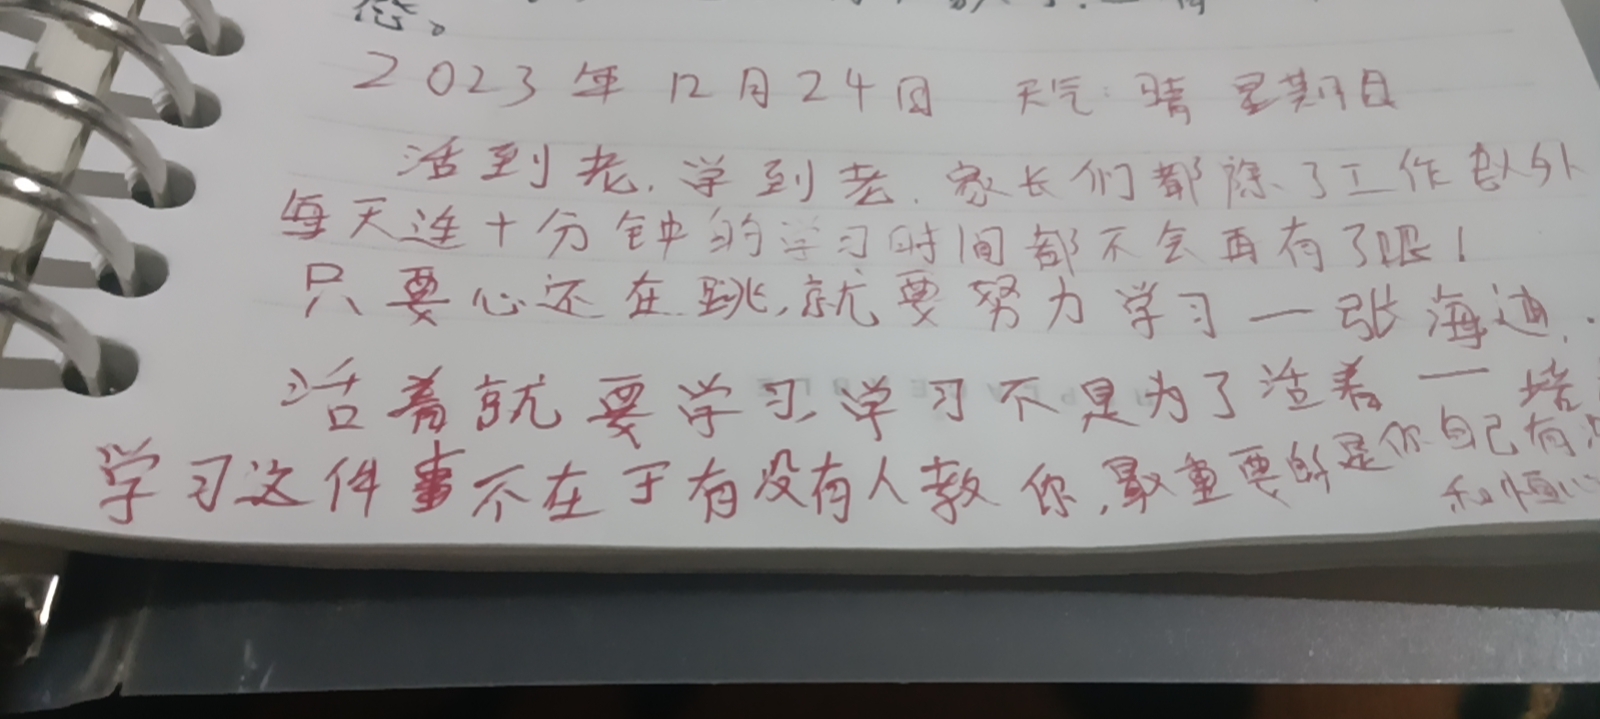 您。
2023年12月24日 天气:晴 星期日
活到老,学到老,家长们都除了工作以外
每天连十分钟的学习时间都不会再有了吧!
只要心还在跳,就要努力学习一张海迪.
活着就要学习,学习不是为了活着一培
学习这件事不在于有没有人教你,最重要的是你自己有
和恒心